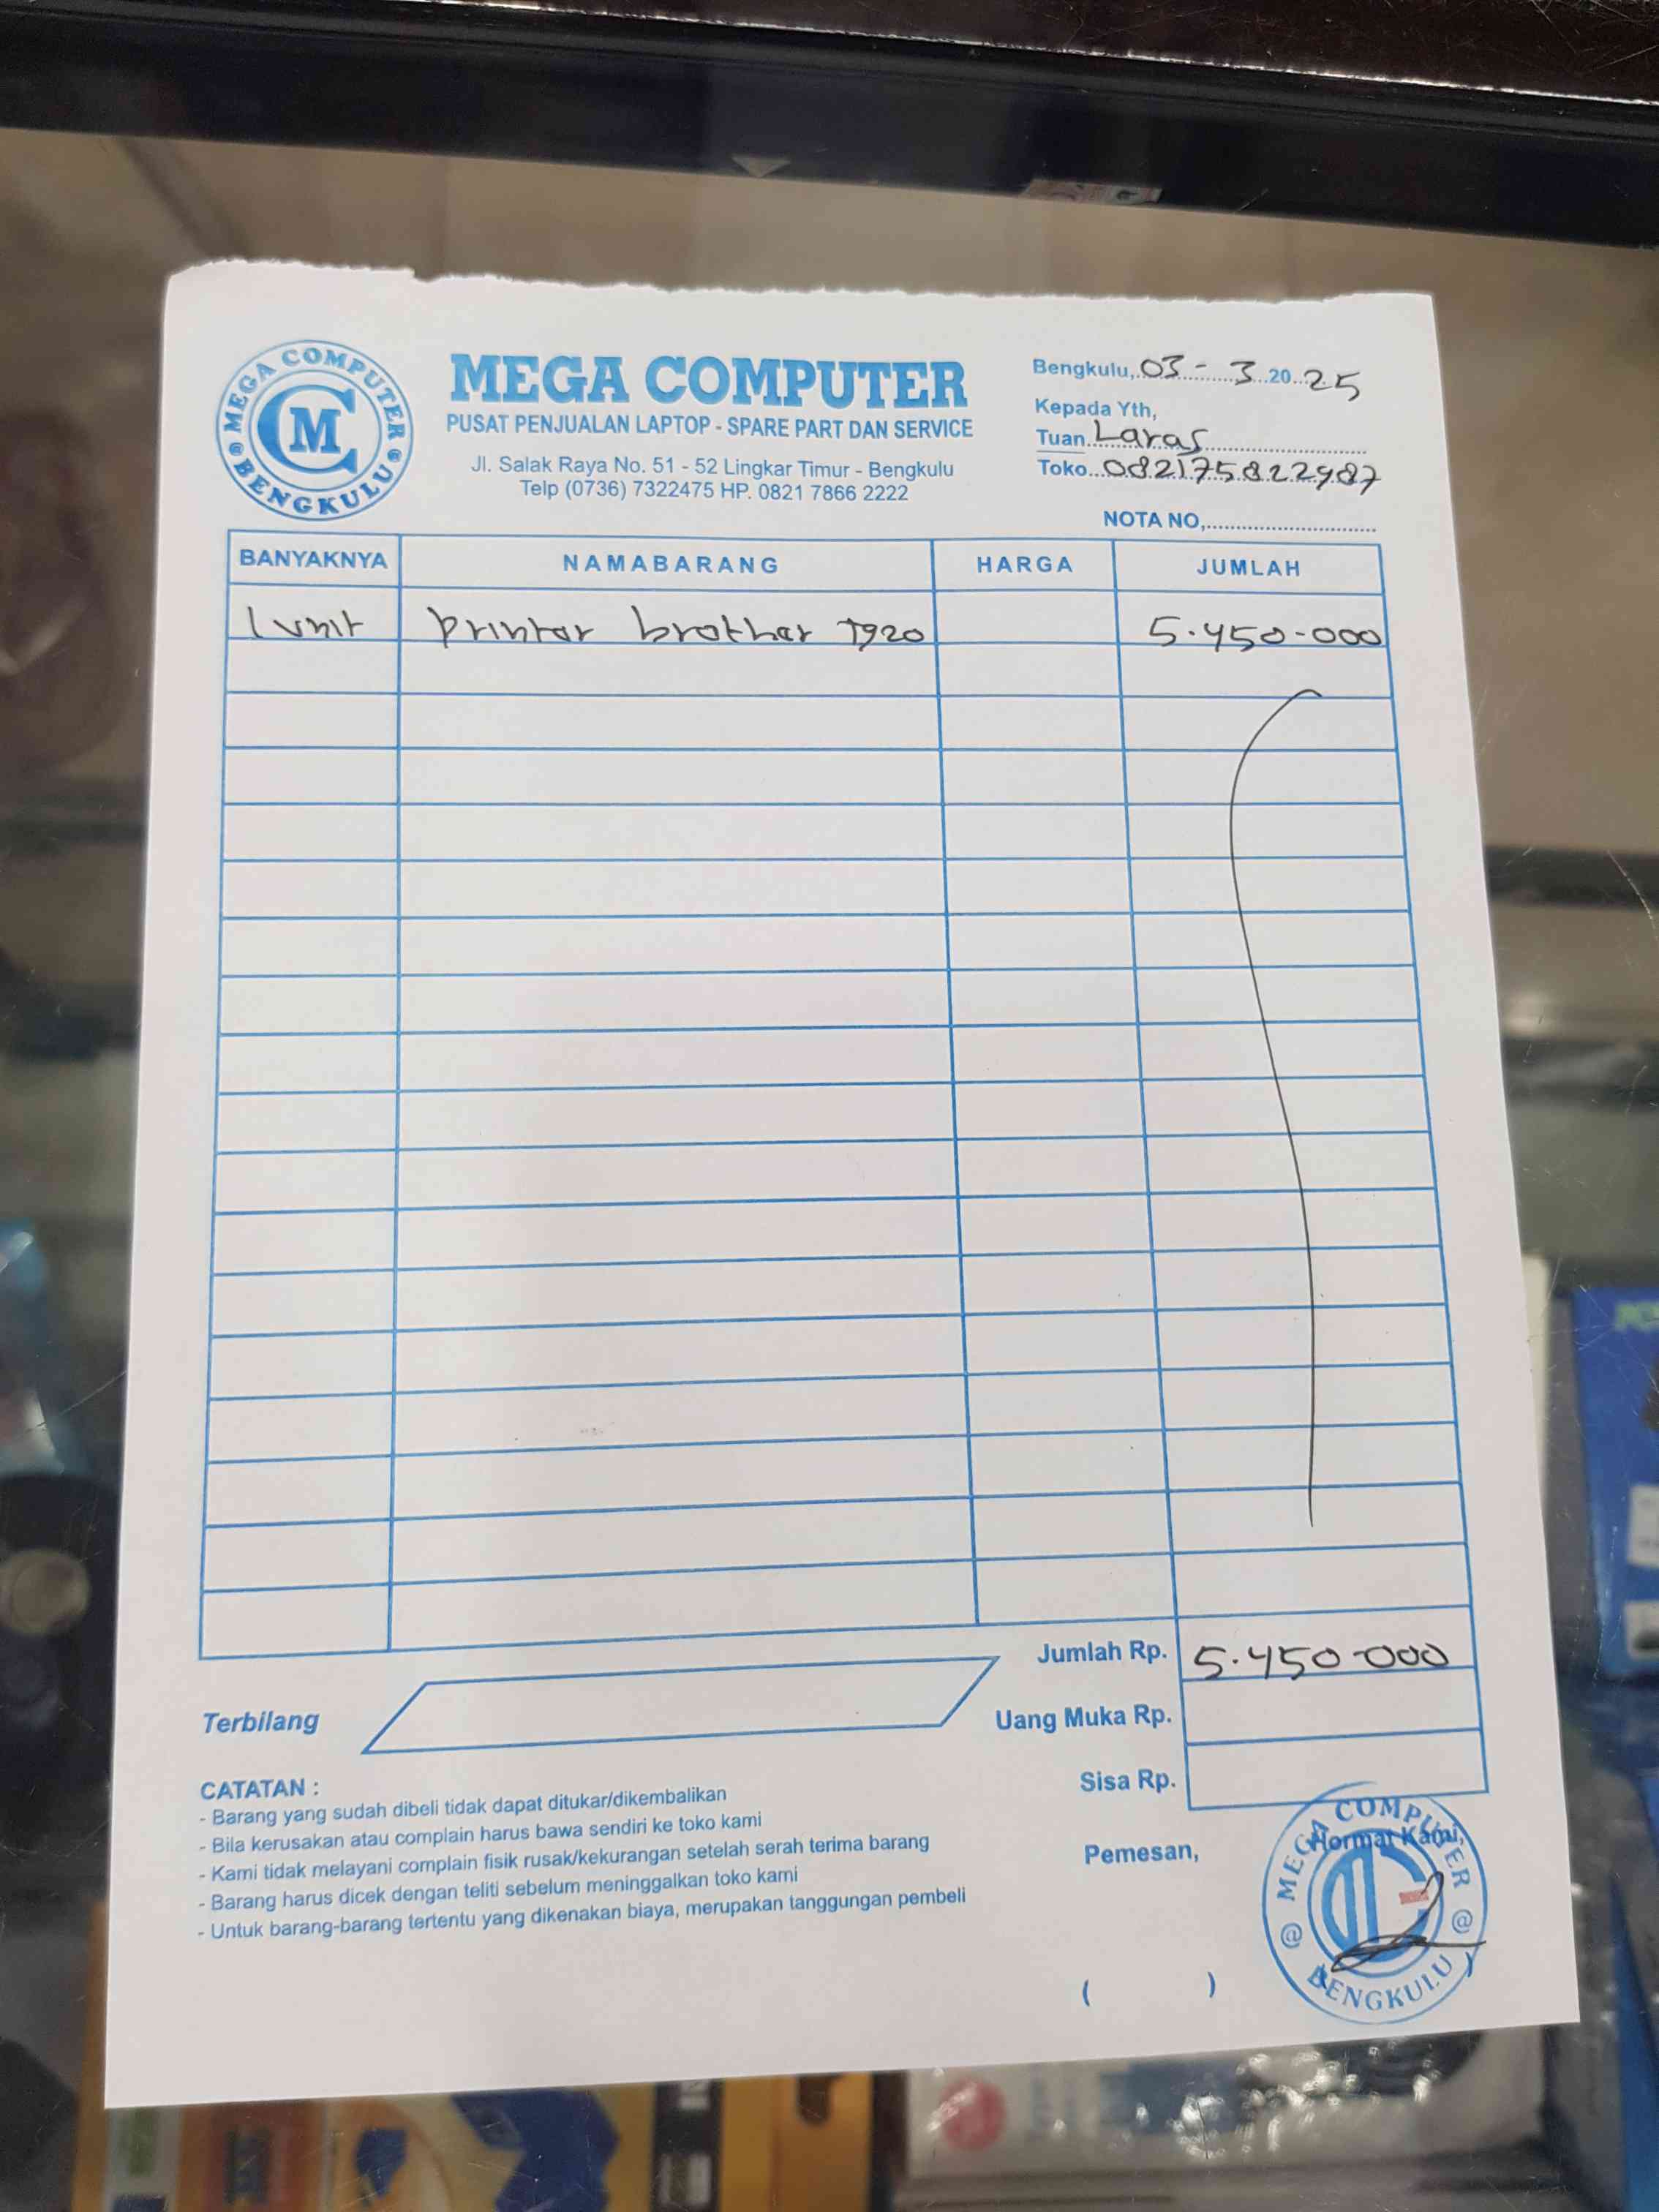 MEGA COMPUTER
BENGKULU
CM
MEGA COMPUTER
PUSAT PENJUALAN LAPTOP - SPARE PART DAN SERVICE
Jl. Salak Raya No. 51 - 52 Lingkar Timur - Bengkulu
Telp (0736) 7322475 HP. 0821 7866 2222
Bengkulu, 03 - 3 20 25
Kepada Yth,
Tuan Laras
Toko 082175822987
NOTA NO,
BANYAKNYA NAMABARANG HARGA JUMLAH
1 unit printer brother T920 5.450.000
Jumlah Rp. 5.450.000
Terbilang
Uang Muka Rp.
Sisa Rp.
CATATAN :
- Barang yang sudah dibeli tidak dapat ditukar/dikembalikan
- Bila kerusakan atau complain harus bawa sendiri ke toko kami
- Kami tidak melayani complain fisik rusak/kekurangan setelah serah terima barang
- Barang harus dicek dengan teliti sebelum meninggalkan toko kami
- Untuk barang-barang tertentu yang dikenakan biaya, merupakan tanggungan pembeli
Pemesan,
( )
Hormat Kami,
MEGA COMPUTER
@ @
BENGKULU